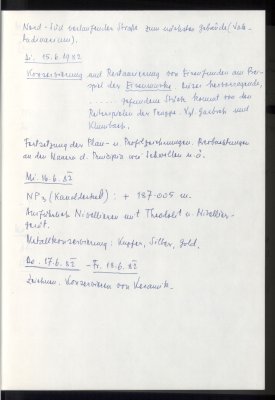 Nord-Süd verlaufenden Straße zum nächsten Gebäude (Vale-
tudinarium).
Di. 15.6.1982
Konservierung und Restaurierung von Eisenfunden am Bei-
spiel der Eisenmaske. Leise hervorragende,
Stück kommt von den
Reiterspielen der Truppe. Vgl. Garbsch und
Klumbach.
Fortsetzung der Plan- u. Profilzeichnungen. Beobachtungen
an der Mauer d. Principia von Schwellen u.ä.
Mi. 16.6.82
NP3 (Kanaldeckel): + 187.005 m.
Ausführlich Nivellieren mit Theodolit u. Nivellier-
gerät.
Metallkonservierung: Kupfer, Silber, Gold.
Do. 17.6.82 - Fr. 18.6.82
Zeichnen, Konservieren von Keramik.